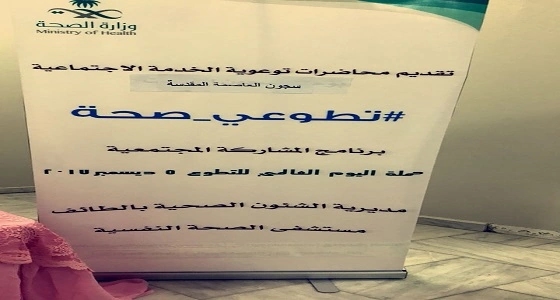 وزارة الصحة
Ministry of Health
تقديم محاضرات توعوية الخدمة الاجتماعية
سجون العاصمة المقدسة
#تطوعي_صحة
برنامج المشاركة المجتمعية
حملة اليوم العالمي للتطوع ٥ ديسمبر ٢٠١٥
مديرية الشئون الصحية بالطائف
مستشفى الصحة النفسية